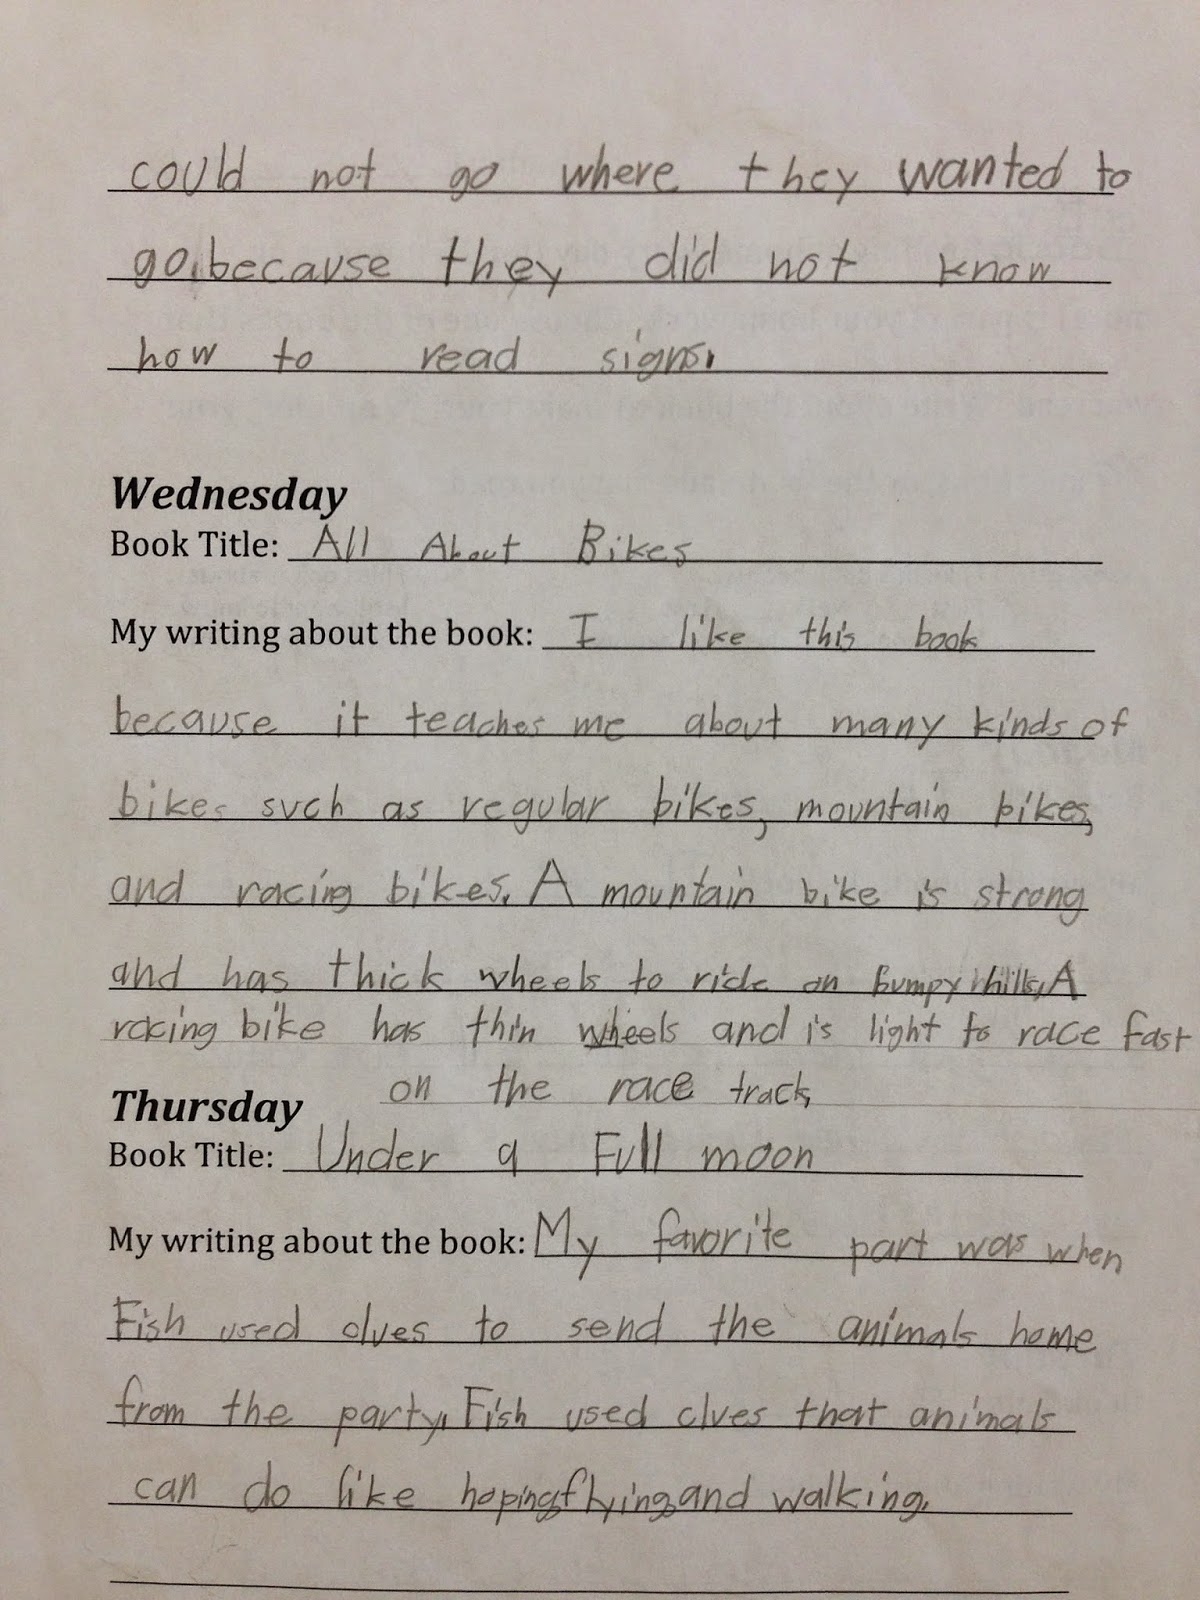 could not go where they wanted to
go, because they did not know
how to read signs.
Wednesday
Book Title: All About Bikes
My writing about the book: I like this book
because it teaches me about many kinds of
bikes such as regular bikes, mountain bikes,
and racing bikes. A mountain bike is strong
and has thick wheels to ride on bumpy hills. A
racing bike has thin wheels and is light to race fast
on the race track.
Thursday
Book Title: Under a Full moon
My writing about the book: My favorite part was when
Fish used clues to send the animals home
from the party. Fish used clues that animals
can do like hoping, flying, and walking.